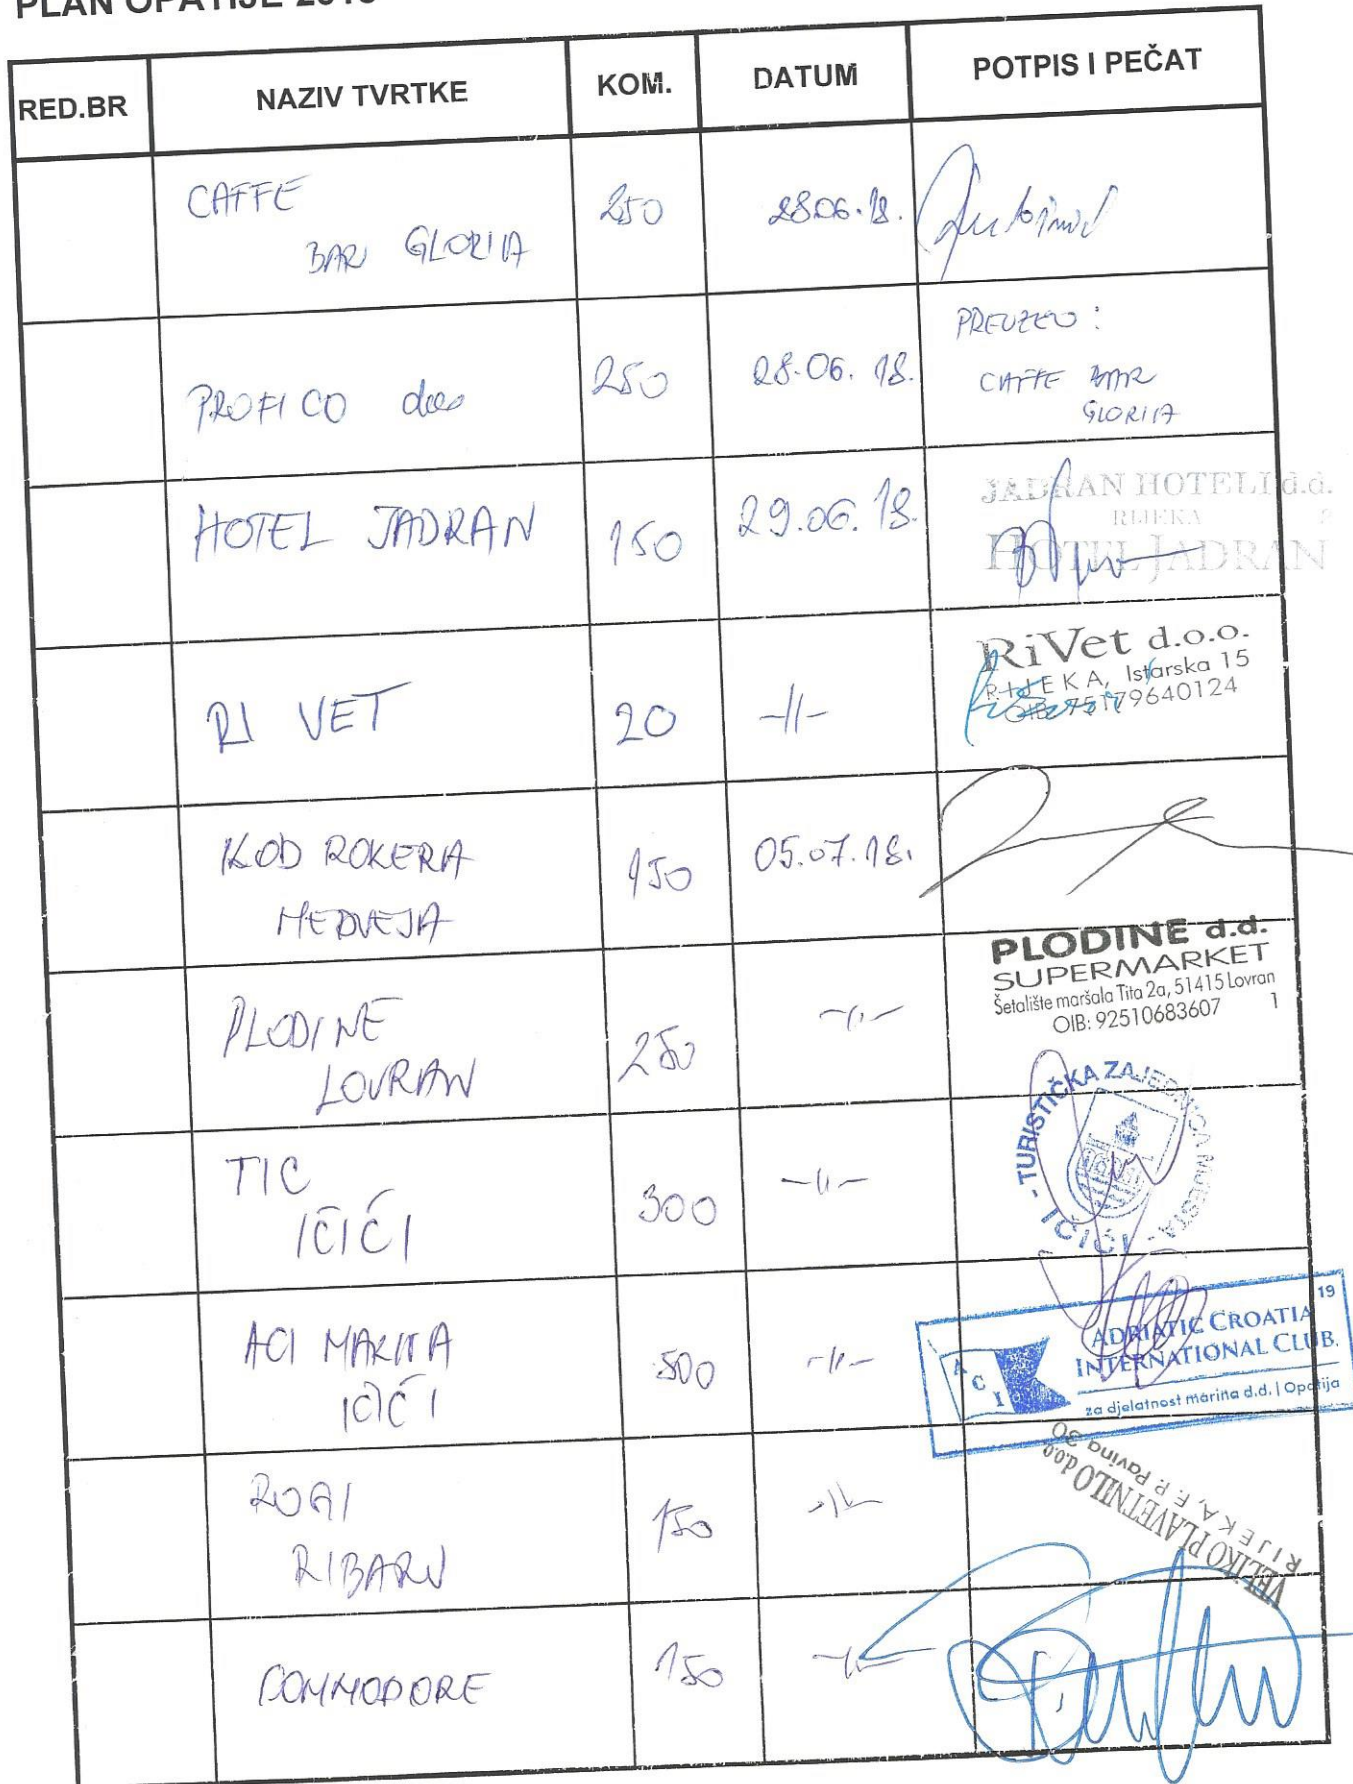 PLAN OPATIJE 2018
RED.BR NAZIV TVRTKE KOM. DATUM POTPIS I PEČAT
CAFFE
BAR GLORIJA 250 28.06.18.
PROFICO doo 250 28.06.18. PREUZEO:
CAFFE BAR
GLORIJA
HOTEL JADRAN 150 29.06.18.
JADRAN HOTELI d.d.
RIJEKA 2
HOTEL JADRAN
RI VET 20 -||-
RiVet d.o.o.
RIJEKA, Istarska 15
OIB: 75179640124
KOD ROKERA
MEDVEJA 150 05.07.18.
PLODINE
LOVRAN 250 -||-
PLODINE d.d.
SUPERMARKET
Šetalište maršala Tita 2a, 51415 Lovran
OIB: 92510683607 1
TIC
IČIĆI 300 -||-
- TURISTIČKA ZAJEDNICA MJESTA -
IČIĆI
ACI MARINA
IČIĆI 500 -||-
19
ACI
ADRIATIC CROATIA
INTERNATIONAL CLUB.
za djelatnost marina d.d. | Opatija
RIBARU 150 -||-
VELIKO PLAVETNILO d.o.o.
RIJEKA, F. P. Pavina 30
COMMODORE 150 -||-